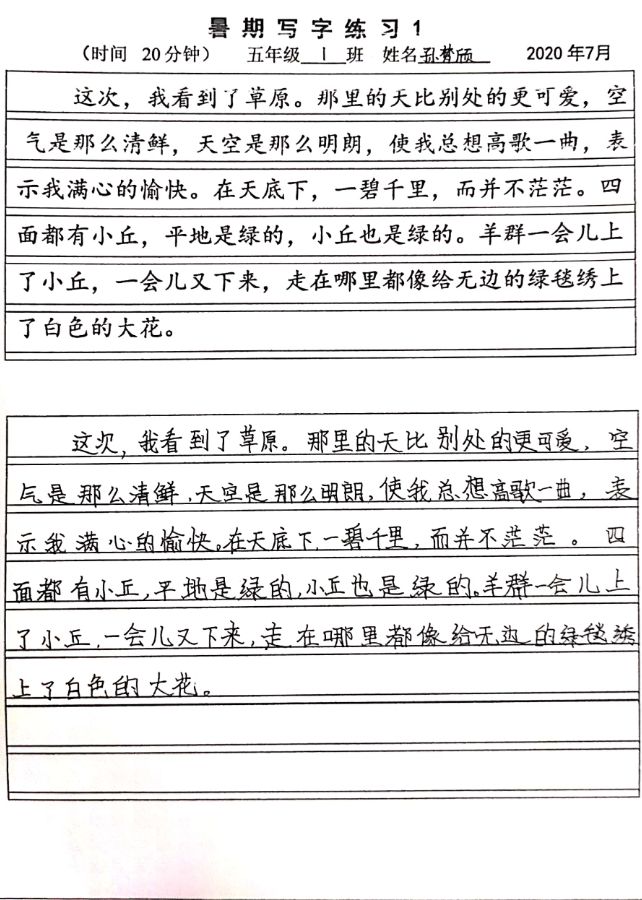 暑期写字练习1
（时间 20分钟） 五年级 1 班 姓名孙梦颀 2020年7月
这次，我看到了草原。那里的天比别处的更可爱，空
气是那么清鲜，天空是那么明朗，使我总想高歌一曲，表
示我满心的愉快。在天底下，一碧千里，而并不茫茫。四
面都有小丘，平地是绿的，小丘也是绿的。羊群一会儿上
了小丘，一会儿又下来，走在哪里都像给无边的绿毯绣上
了白色的大花。
这次，我看到了草原。那里的天比别处的更可爱，空
气是那么清鲜，天空是那么明朗，使我总想高歌一曲，表
示我满心的愉快。在天底下，一碧千里，而并不茫茫。四
面都有小丘，平地是绿的，小丘也是绿的。羊群一会儿上
了小丘，一会儿又下来，走在哪里都像给无边的绿毯绣
上了白色的大花。